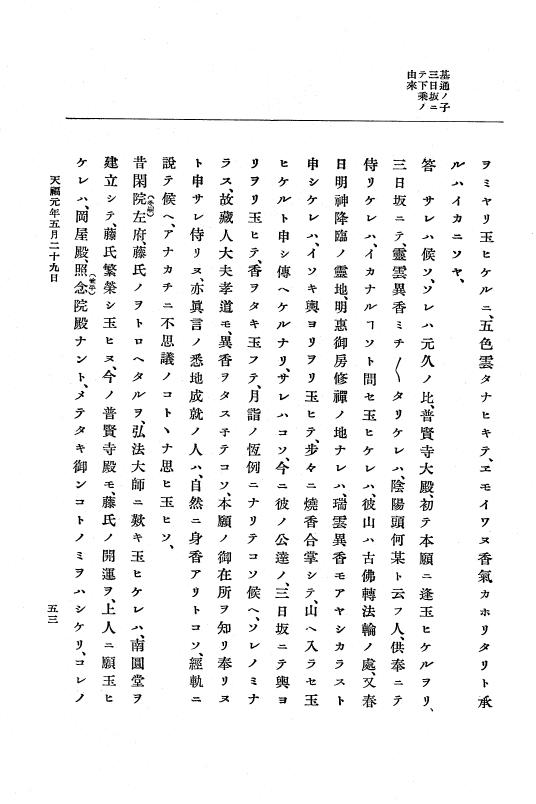 基通ノ子
三日坂ニ
テ下乘ノ
由來
ヲミヤリ玉ヒケルニ、五色雲タナヒキテ、ヱモイワヌ香氣カホリタリト承
ルハイカニソヤ、
答　サレハ候ソ、ソレハ元久ノ比、普賢寺大殿、初テ本願ニ逢玉ヒケルヲリ、
三日坂ニテ、靈雲異香ミチ〱タリケレハ、陰陽頭何某ト云フ人、供奉ニテ
侍リケレハ、イカナルヿソト問セ玉ヒケレハ、彼山ハ古佛轉法輪ノ處、又春
日明神降臨ノ靈地、明惠御房修禪ノ地ナレハ、瑞雲異香モアヤシカラスト
申シケレハ、イソキ輿ヨリヲリ玉ヒテ、步々ニ燒香合掌シテ、山ヘ入ラセ玉
ヒケルト申シ傳ヘケルナリ、サレハコソ、今ニ彼ノ公達ノ、三日坂ニテ輿ヨ
リヲリ玉ヒテ、香ヲタキ玉フテ、月詣ノ恆例ニナリテコソ候ヘ、ソレノミナ
ラス、故藏人大夫孝道モ、異香ヲタスネテコソ、本願ノ御在所ヲ知リ奉リヌ
ト申サレ侍リヌ、亦眞言ノ悉地成就ノ人ハ、自然ニ身香アリトコソ、經軌ニ
說テ候ヘ、アナカチニ不思議ノコトヽナ思ヒ玉ヒソ、
昔閑院左府、藤氏ノヲトロヘタルヲ、弘法大師ニ歎キ玉ヒケレハ、南圓堂ヲ
建立シテ、藤氏繁榮シ玉ヒヌ、今ノ普賢寺殿モ、藤氏ノ開運ヲ、上人ニ願玉ヒ
ケレハ、岡屋殿、照念院殿ナント、メテタキ御ンコトノミヲハシケリ、コレノ
天福元年五月二十九日
五三